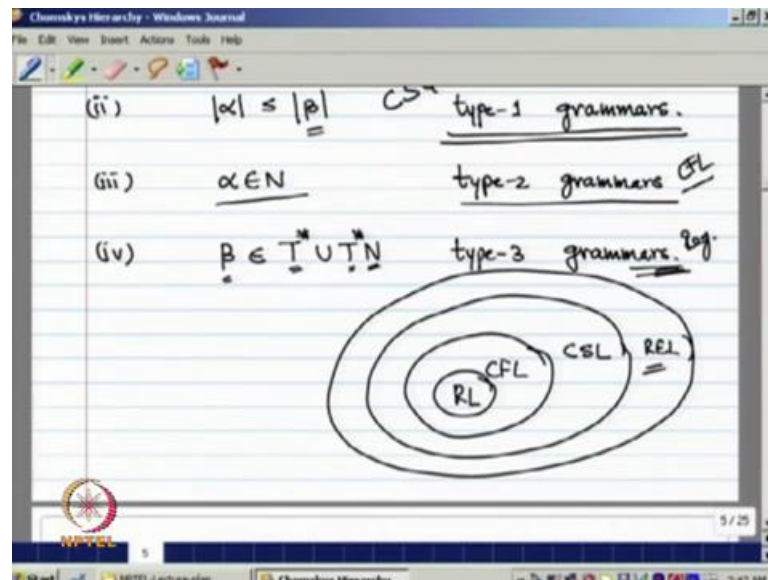 Chomskys Hierarchy - Windows Journal
File Edit View Insert Actions Tools Help
(ii) |α| ≤ |β| CSG type-1 grammars.
(iii) α ∈ N type-2 grammars CFL
(iv) β ∈ T* ∪ T*N type-3 grammars. Reg.
RL CFL CSL REL
NPTEL
5
5 / 25
Start Chomskys Hierarchy